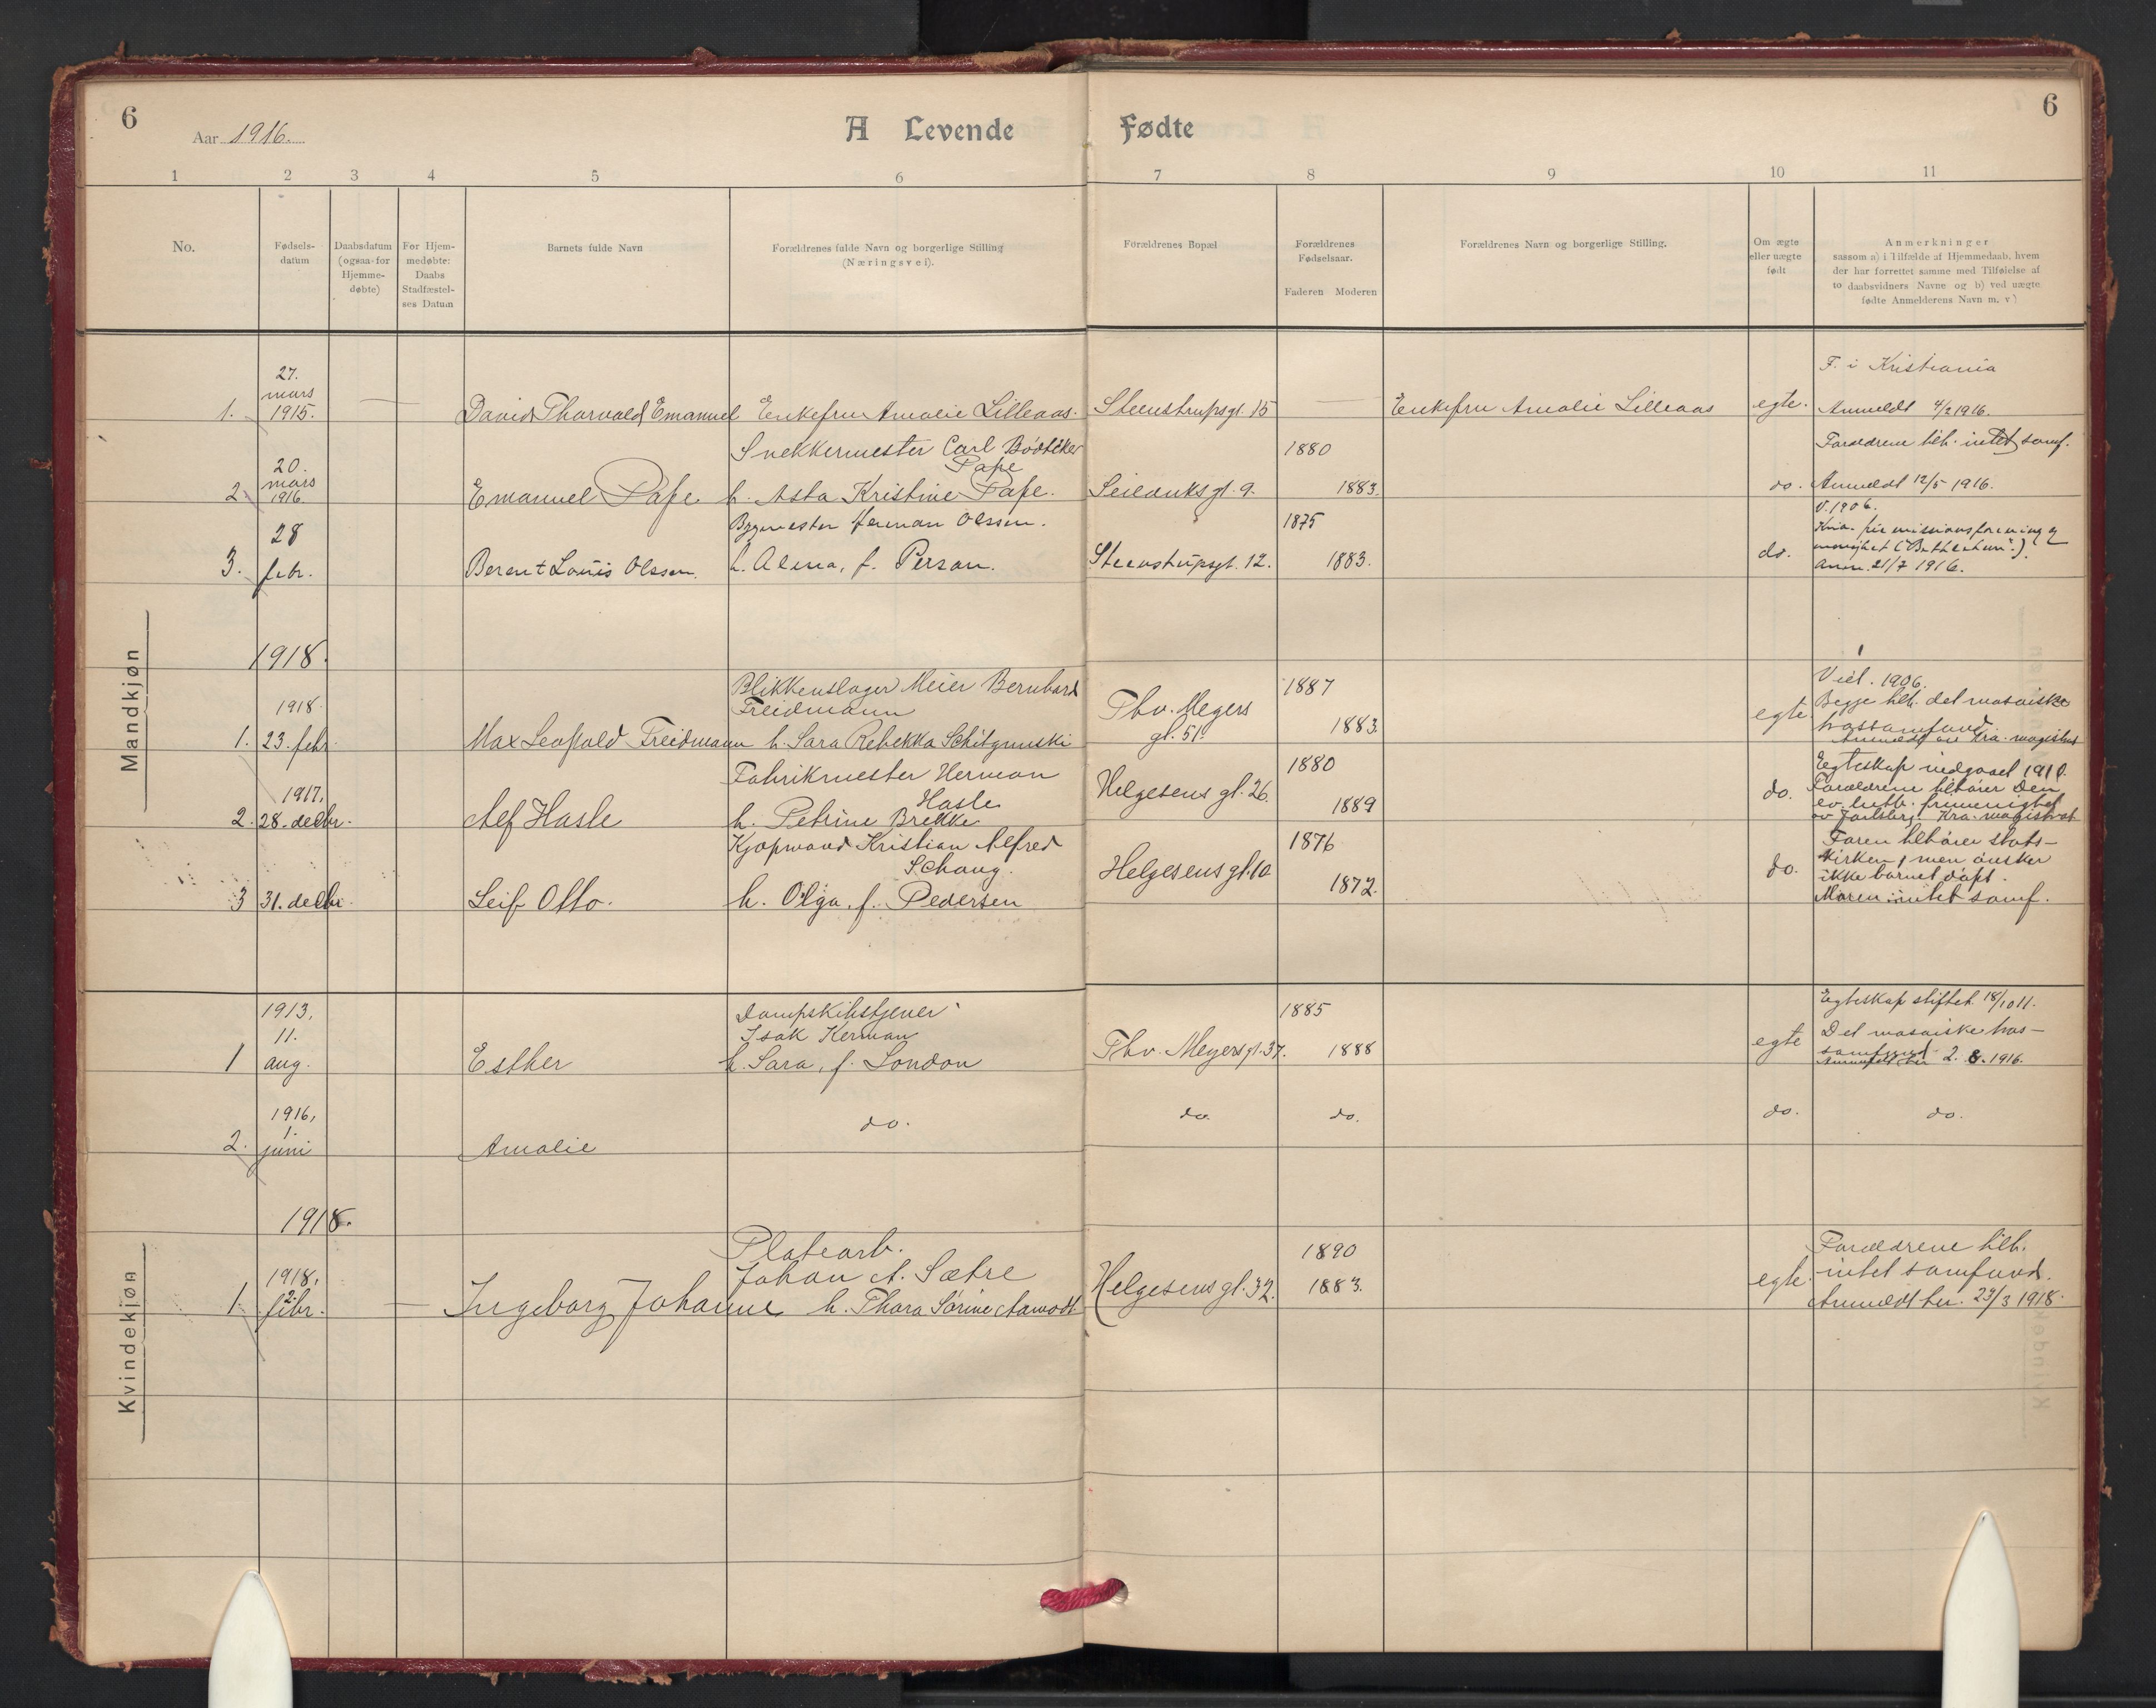 6
Aar 1916.
A Levende
Fødte
6
1
2
3
4
5
6
7
8
9
10
11
No.
Fødsels-
datum
Daabsdatum
(ogsaa for
Hjemme-
døbte)
For Hjem-
medøbte:
Daabs
Stadfæstel-
ses Datum
Barnets fulde Navn
Forældrenes fulde Navn og borgerlige Stilling
(Næringsvei).
Forældrenes Bopæl
Forældrenes
Fødselsaar.
Faderen Moderen
Forældrenes Navn og borgerlige Stilling.
Om ægte
eller uægte
født
Anmerkninger
sassom a) i Tilfælde af Hjemmedaab, hvem
der har forrettet samme med Tilføielse af
to daabsvidners Navne og b) ved uægte
fødte Anmelderens Navn m, v)
Mandkjøn
27.
mars
1. 1915. David Thorvald Emanuel Enkefru Amalie Lilleaas. Steenstrupsgt. 15 Enkefru Amalie Lilleaas egte.
F. i Kristiania
Anmeldt 4/2 1916.
20.
mars
2. 1916. Emanuel Pape
Snekkermester Carl Bödtker
Pape
h. Asta Kristine Pape. Seilduksgt. 9.
1880
1883. do.
Forældrene tilh. intet samf.
Anmeldt 12/5 1916.
28
3. febr. Berent Louis Olssen.
Bygmester Herman Olssen.
h. Alma, f. Person. Steenstrupsgt. 12.
1875
1883. do.
V. 1906.
Kria. fri missionsforening og
menighet ("Bethlehem").
Anm. 21/7 1916.
1918.
1918
1. 23. febr. Max Leopold Freidmann
Blikkenslager Meier Bernhard
Freidmann
h. Sara Rebekka Schitgunski
Thv. Meyers
gt. 51.
1887
1883. egte
Viet. 1906.
Begge tilh. det mosaiske
trossamfund.
Anmeldt av Kra. magistrat
1917.
2. 28. decbr. Alf Hasle
Fabrikmester Herman
Hasle
h. Petrine Brekke
Helgesens gt. 26.
1880
1889
do.
Egteskap indgaaet 1910.
Forældrene tilhører Den
ev. luth. frimenighet
av Jarlsberg. Kra. magistrat
3 31. decbr. Leif Otto.
Kjøpmand Kristian Alfred
Schaug.
h. Olga, f. Pedersen
Helgesens gt. 10
1876
1872.
do.
Faren tilhører stats-
kirken, men ønsker
ikke barnet døpt.
Moren intet samf.
Kvindekjøn
1913.
11.
1 aug. Esther
Dampskibstjener
Isak Kerman
h. Sara, f. London
Thv. Meyers gt. 37.
1885
1888
egte
Egteskap stiftet 18/10 11.
Det mosaiske tros-
samfund
Anmeldt her 2. 8. 1916.
1916,
1.
2. juni Amalie do. do. do. do. do.
1918.
1918.
2.
1. febr. Ingeborg Johanne
Platearb.
Johan A. Sætre
h. Thora Sörine Aamodt
Helgesens gt. 32.
1890
1883.
egte.
Forældrene tilh.
intet samfund.
Anmeldt her. 23/3 1918.